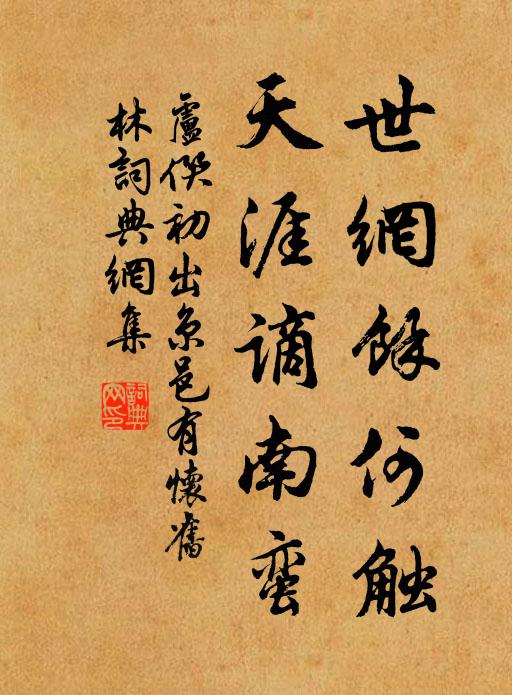 世網餘何触
天涯謫南蛮
盧僎初出京邑有懷舊
林詞典網集
詞典
网印